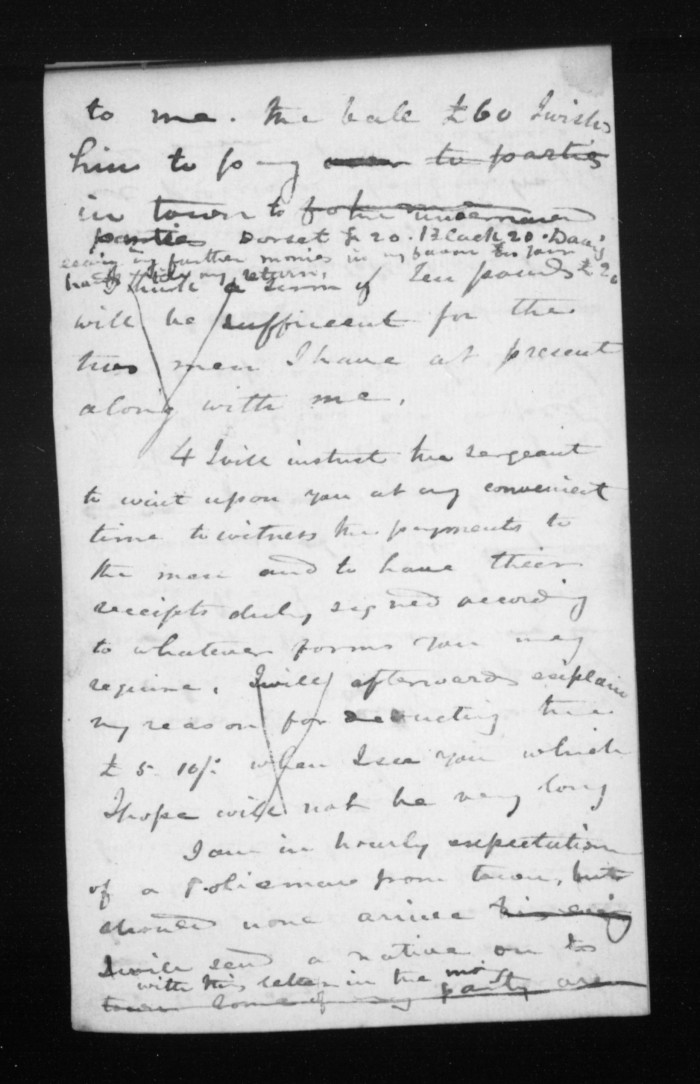 to me. the bale £60 I wish
him to pay to parties
in town to undermined
parties Dorset £20. Black 20. Davis
any further monies in my favour
my return. £20
I think a sum of Ten pounds
will be sufficient for the
two men I have at present
along with me.
4 I will instruct the sergeant
to wait upon you at any convenient
time to witness the payments to
the men and to have their
receipts duly signed according
to whatever forms you may
require. I will afterwards explain
my reason for deducting the
£5.10/- when I see you which
I hope will not be very long
I am in hourly expectation
of a Policeman from town, but
should none arrive
I will send a native on to
with this letter in the
town Some of my party are